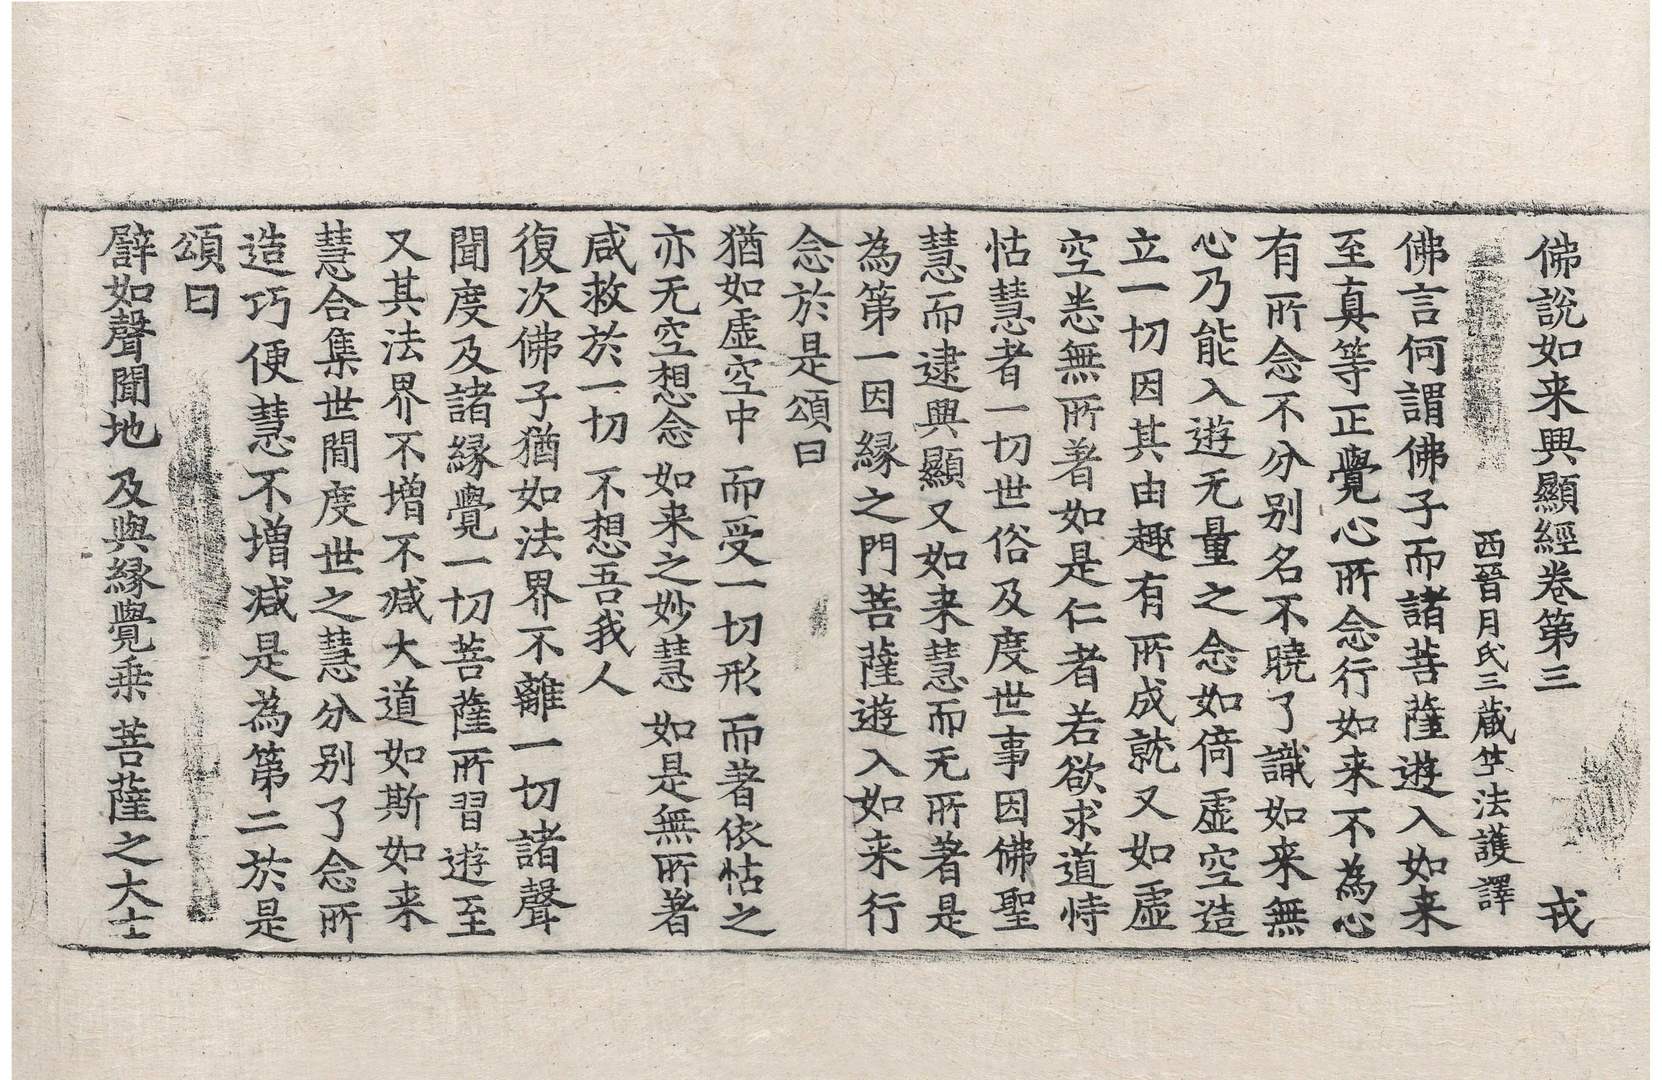 佛說如来興顯經卷第三 戎
西晉月氏三藏竺法護譯
佛言何謂佛子而諸菩薩遊入如来
至真等正覺心所念行如来不為心
有所念不分別名不曉了識如来無
心乃能入遊无量之念如倚虛空造
立一切因其由趣有所成就又如虛
空悉無所著如是仁者若欲求道恃
怙慧者一切世俗及度世事因佛聖
慧而逮興顯又如来慧而无所著是
為第一因緣之門菩薩遊入如来行
念於是頌曰
猶如虛空中 而受一切形 而著依怙之
亦无空想念 如来之妙慧 如是無所著
咸救於一切 不想吾我人
復次佛子猶如法界不離一切諸聲
聞度及諸緣覺一切菩薩所習遊至
又其法界不增不減大道如斯如来
慧合集世間度世之慧分別了念所
造巧便慧不增減是為第二於是
頌曰
譬如聲聞地 及與緣覺乘 菩薩之大士